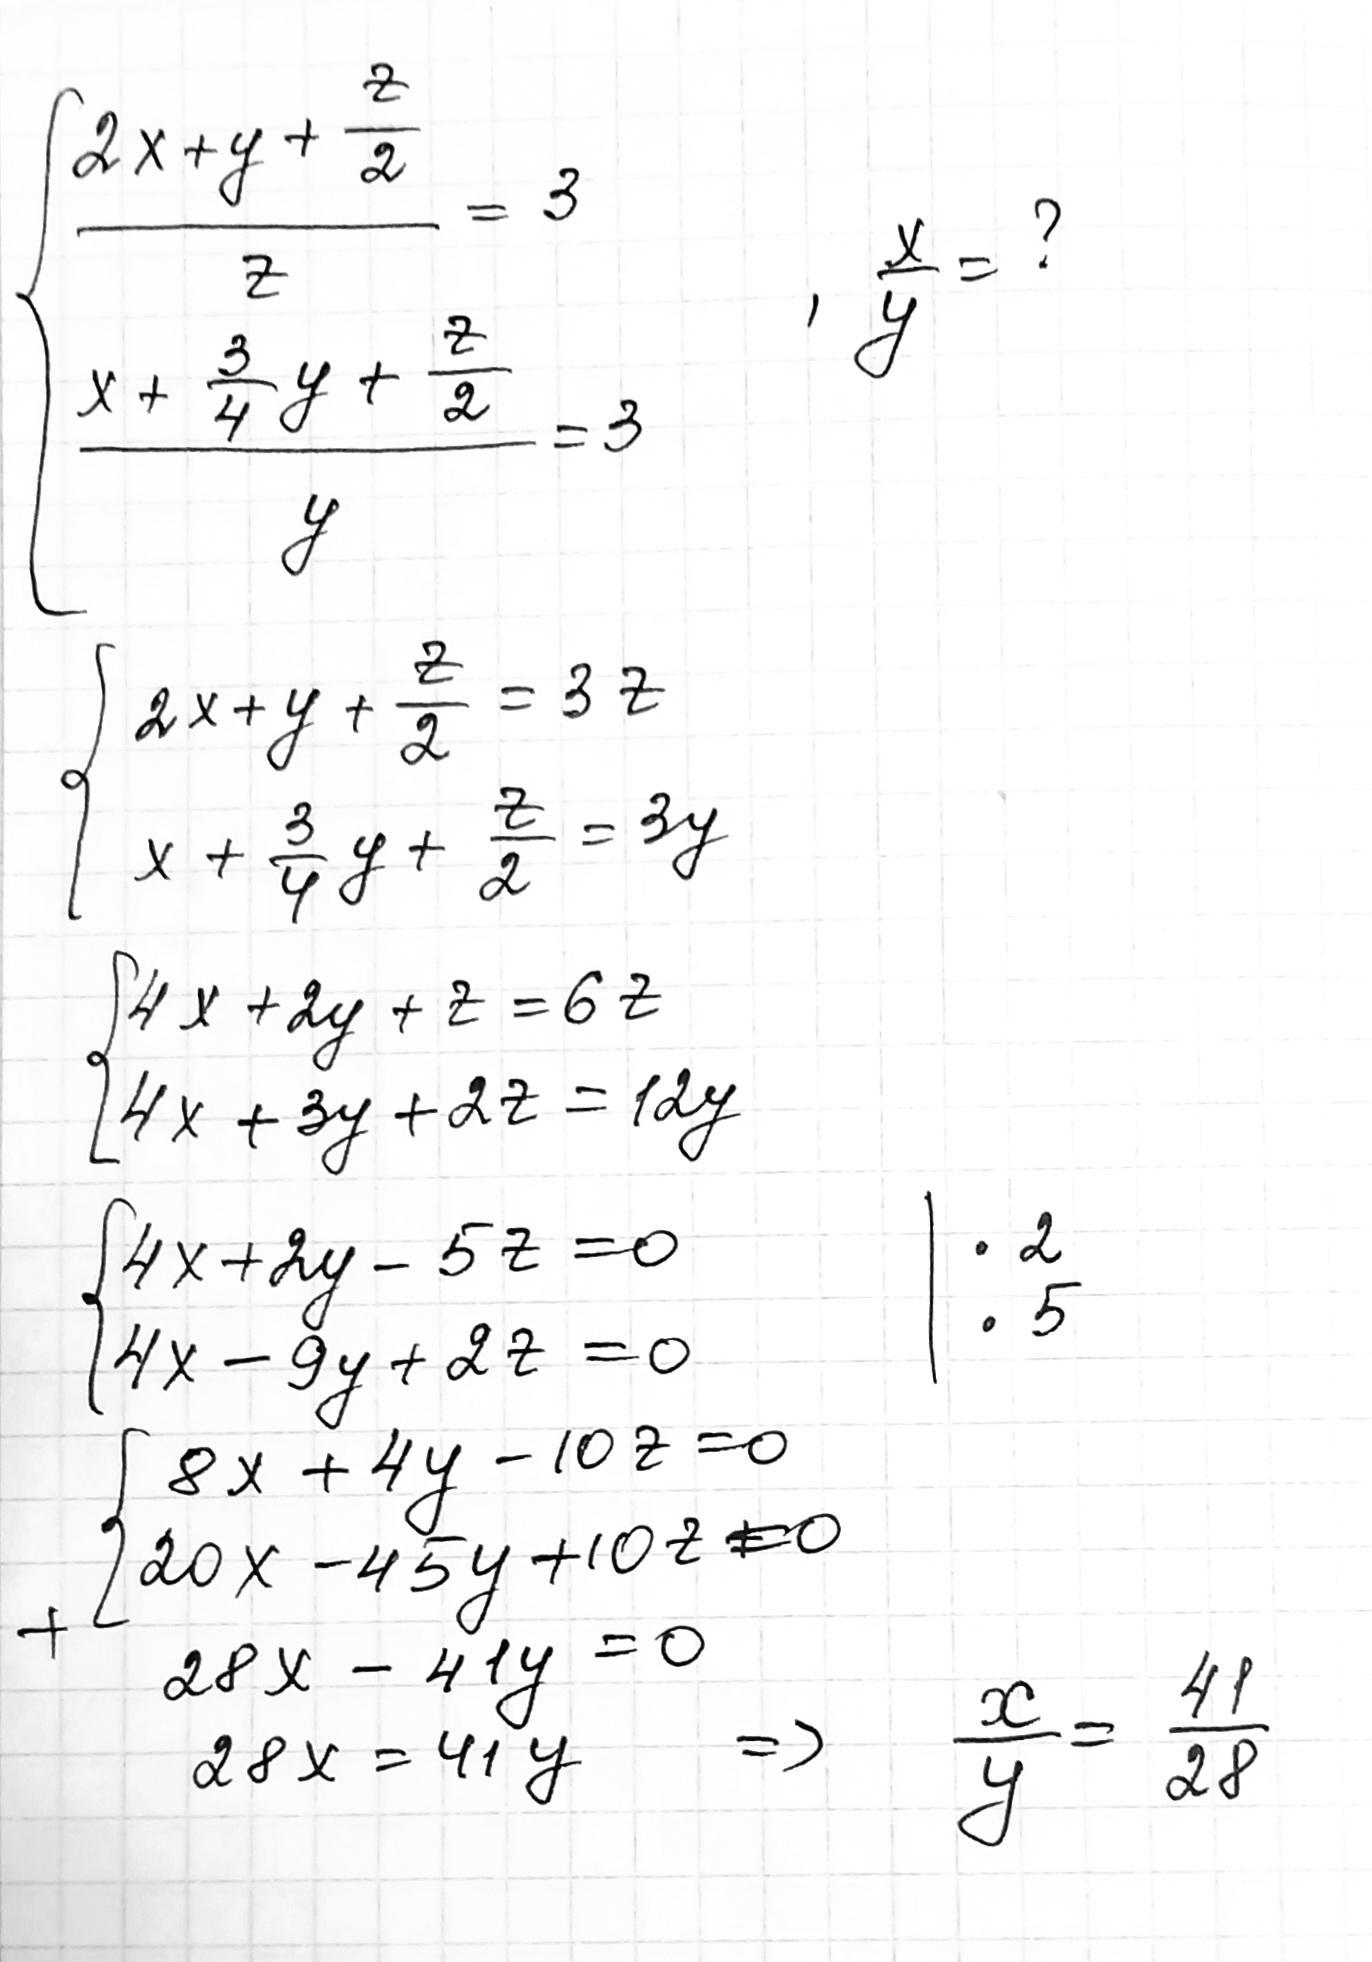 { (2x + y + z/2) / z = 3
{ (x + 3/4 y + z/2) / y = 3 , x/y = ?
{ 2x + y + z/2 = 3z
{ x + 3/4 y + z/2 = 3y
{ 4x + 2y + z = 6z
{ 4x + 3y + 2z = 12y
{ 4x + 2y - 5z = 0 | · 2
{ 4x - 9y + 2z = 0 | · 5
{ 8x + 4y - 10z = 0
{ 20x - 45y + 10z = 0
+
28x - 41y = 0
28x = 41y => x/y = 41/28